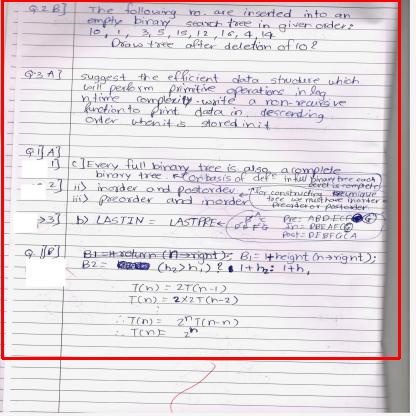 Q.2 B] The following no. are inserted into an
empty binary search tree in given order:
10, 1, 3, 5, 15, 12, 16, 4, 14
Draw tree after deletion of 10?
Q.3 A] suggest the efficient data structure which
will perform primitive operations in log
n time complexity. write a non-recursive
function to print data in descending
order when it is stored in it
Q.1] A]
1] c] Every full binary tree is also a complete
binary tree ← on basis of defn in full binary tree each
level is complete
2] ii) inorder and postorder
iii) preorder and inorder
for constructing unique
tree we must have inorder &
Preorder or postorder
→3] b) LASTIN = LASTPRE
Pre: ABDECFG
In = DBEAFCG
Post = DEBFGCA
Q.1] B] B1 = 1+return (n→right); B1 = 1+height (n→right);
B2 = (h2>h1) ? 1+h2 : 1+h1
T(n) = 2T(n-1)
T(n) = 2×2T(n-2)
∴ T(n) = 2ⁿT(n-n)
∴ T(n) = 2ⁿ